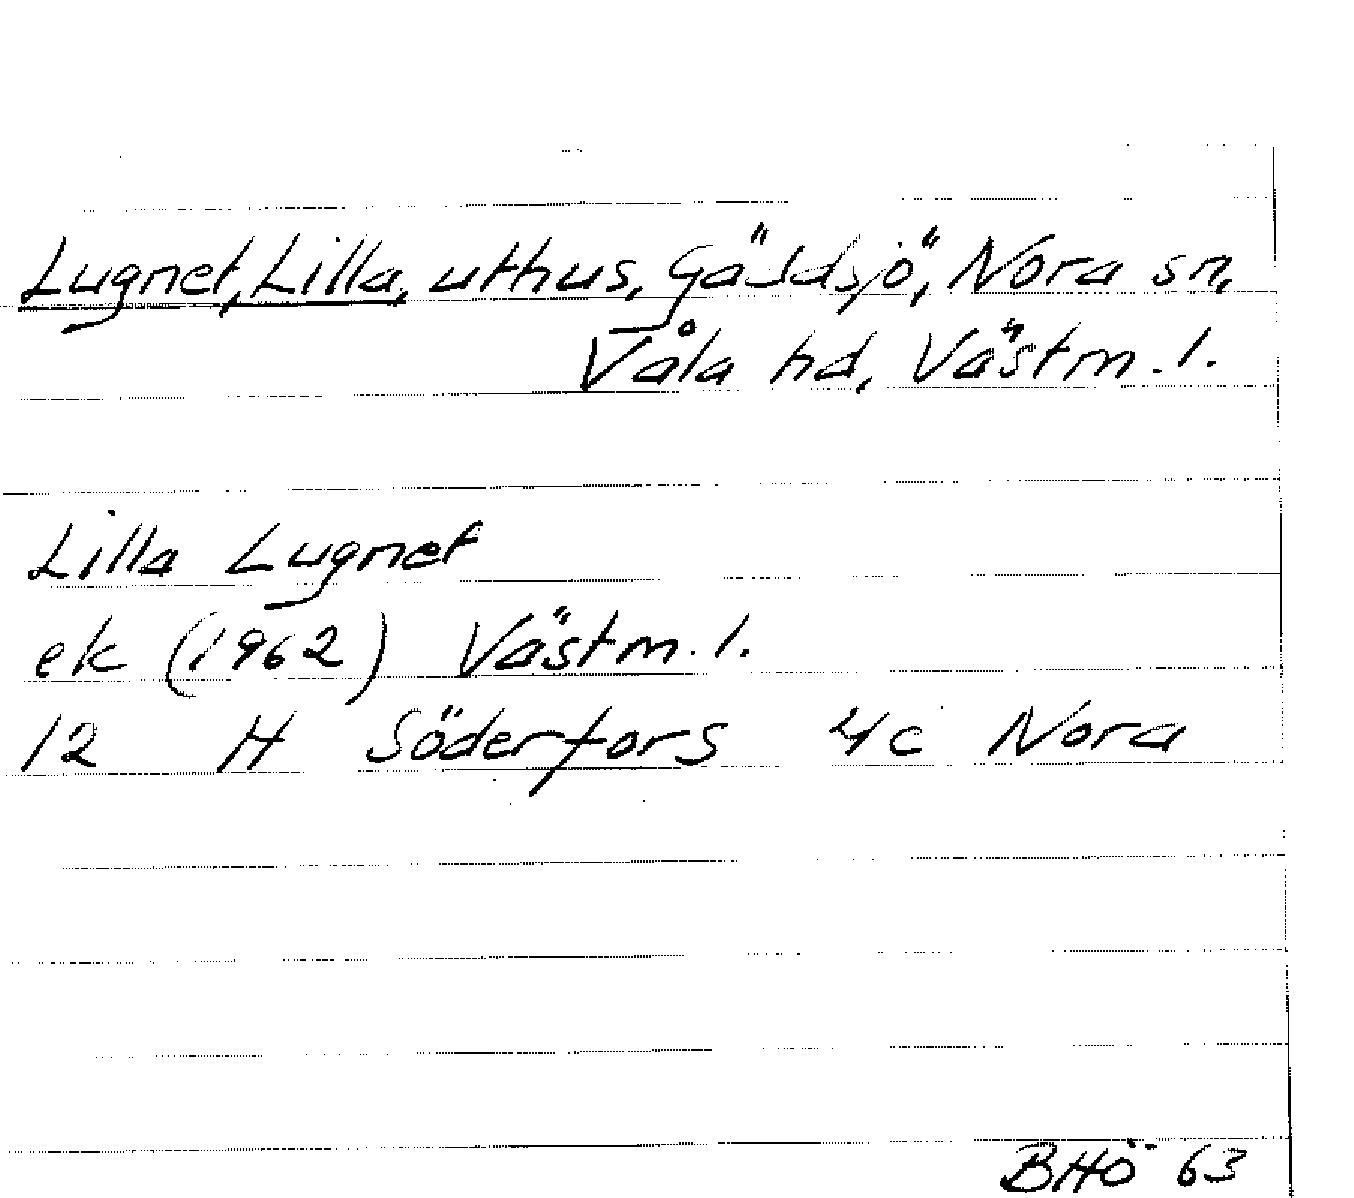 Lugnet, Lilla, uthus, Gäddsjö, Nora sn,
Våla hd, Västm. l.
Lilla Lugnet
ek (1962) Västm. l.
12 H Söderfors 4c Nora
BHÖ 63